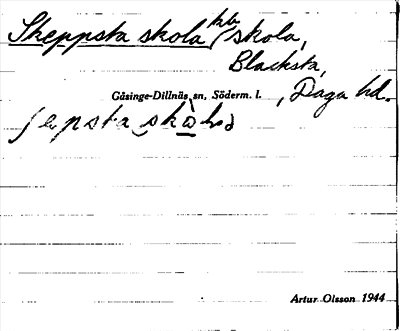 Skeppsta skola, skola,
Blacksta,
Gåsinge-Dillnäs sn, Söderm. l. , Daga hd.
Artur Olsson 1944